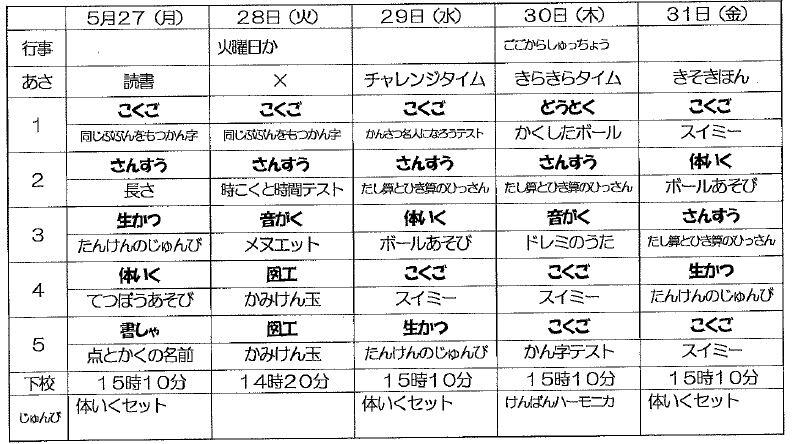 5月27（月） 28日（火） 29日（水） 30日（木） 31日（金）
行事 火曜日か ごごからしゅっちょう
あさ 読書 × チャレンジタイム きらきらタイム きそきほん
1 こくご こくご こくご どうとく こくご
同じぶぶんをもつかん字 同じぶぶんをもつかん字 かんさつ名人になろうテスト かくしたボール スイミー
2 さんすう さんすう さんすう さんすう 体いく
長さ 時こくと時間テスト たし算とひき算のひっさん たし算とひき算のひっさん ボールあそび
3 生かつ 音がく 体いく 音がく さんすう
たんけんのじゅんび メヌエット ボールあそび ドレミのうた たし算とひき算のひっさん
4 体いく 図工 こくご こくご 生かつ
てつぼうあそび かみけん玉 スイミー スイミー たんけんのじゅんび
5 書しゃ 図工 生かつ こくご こくご
点とかくの名前 かみけん玉 たんけんのじゅんび かん字テスト スイミー
下校 15時10分 14時20分 15時10分 15時10分 15時10分
じゅんび 体いくセット 体いくセット けんばんハーモニカ 体いくセット